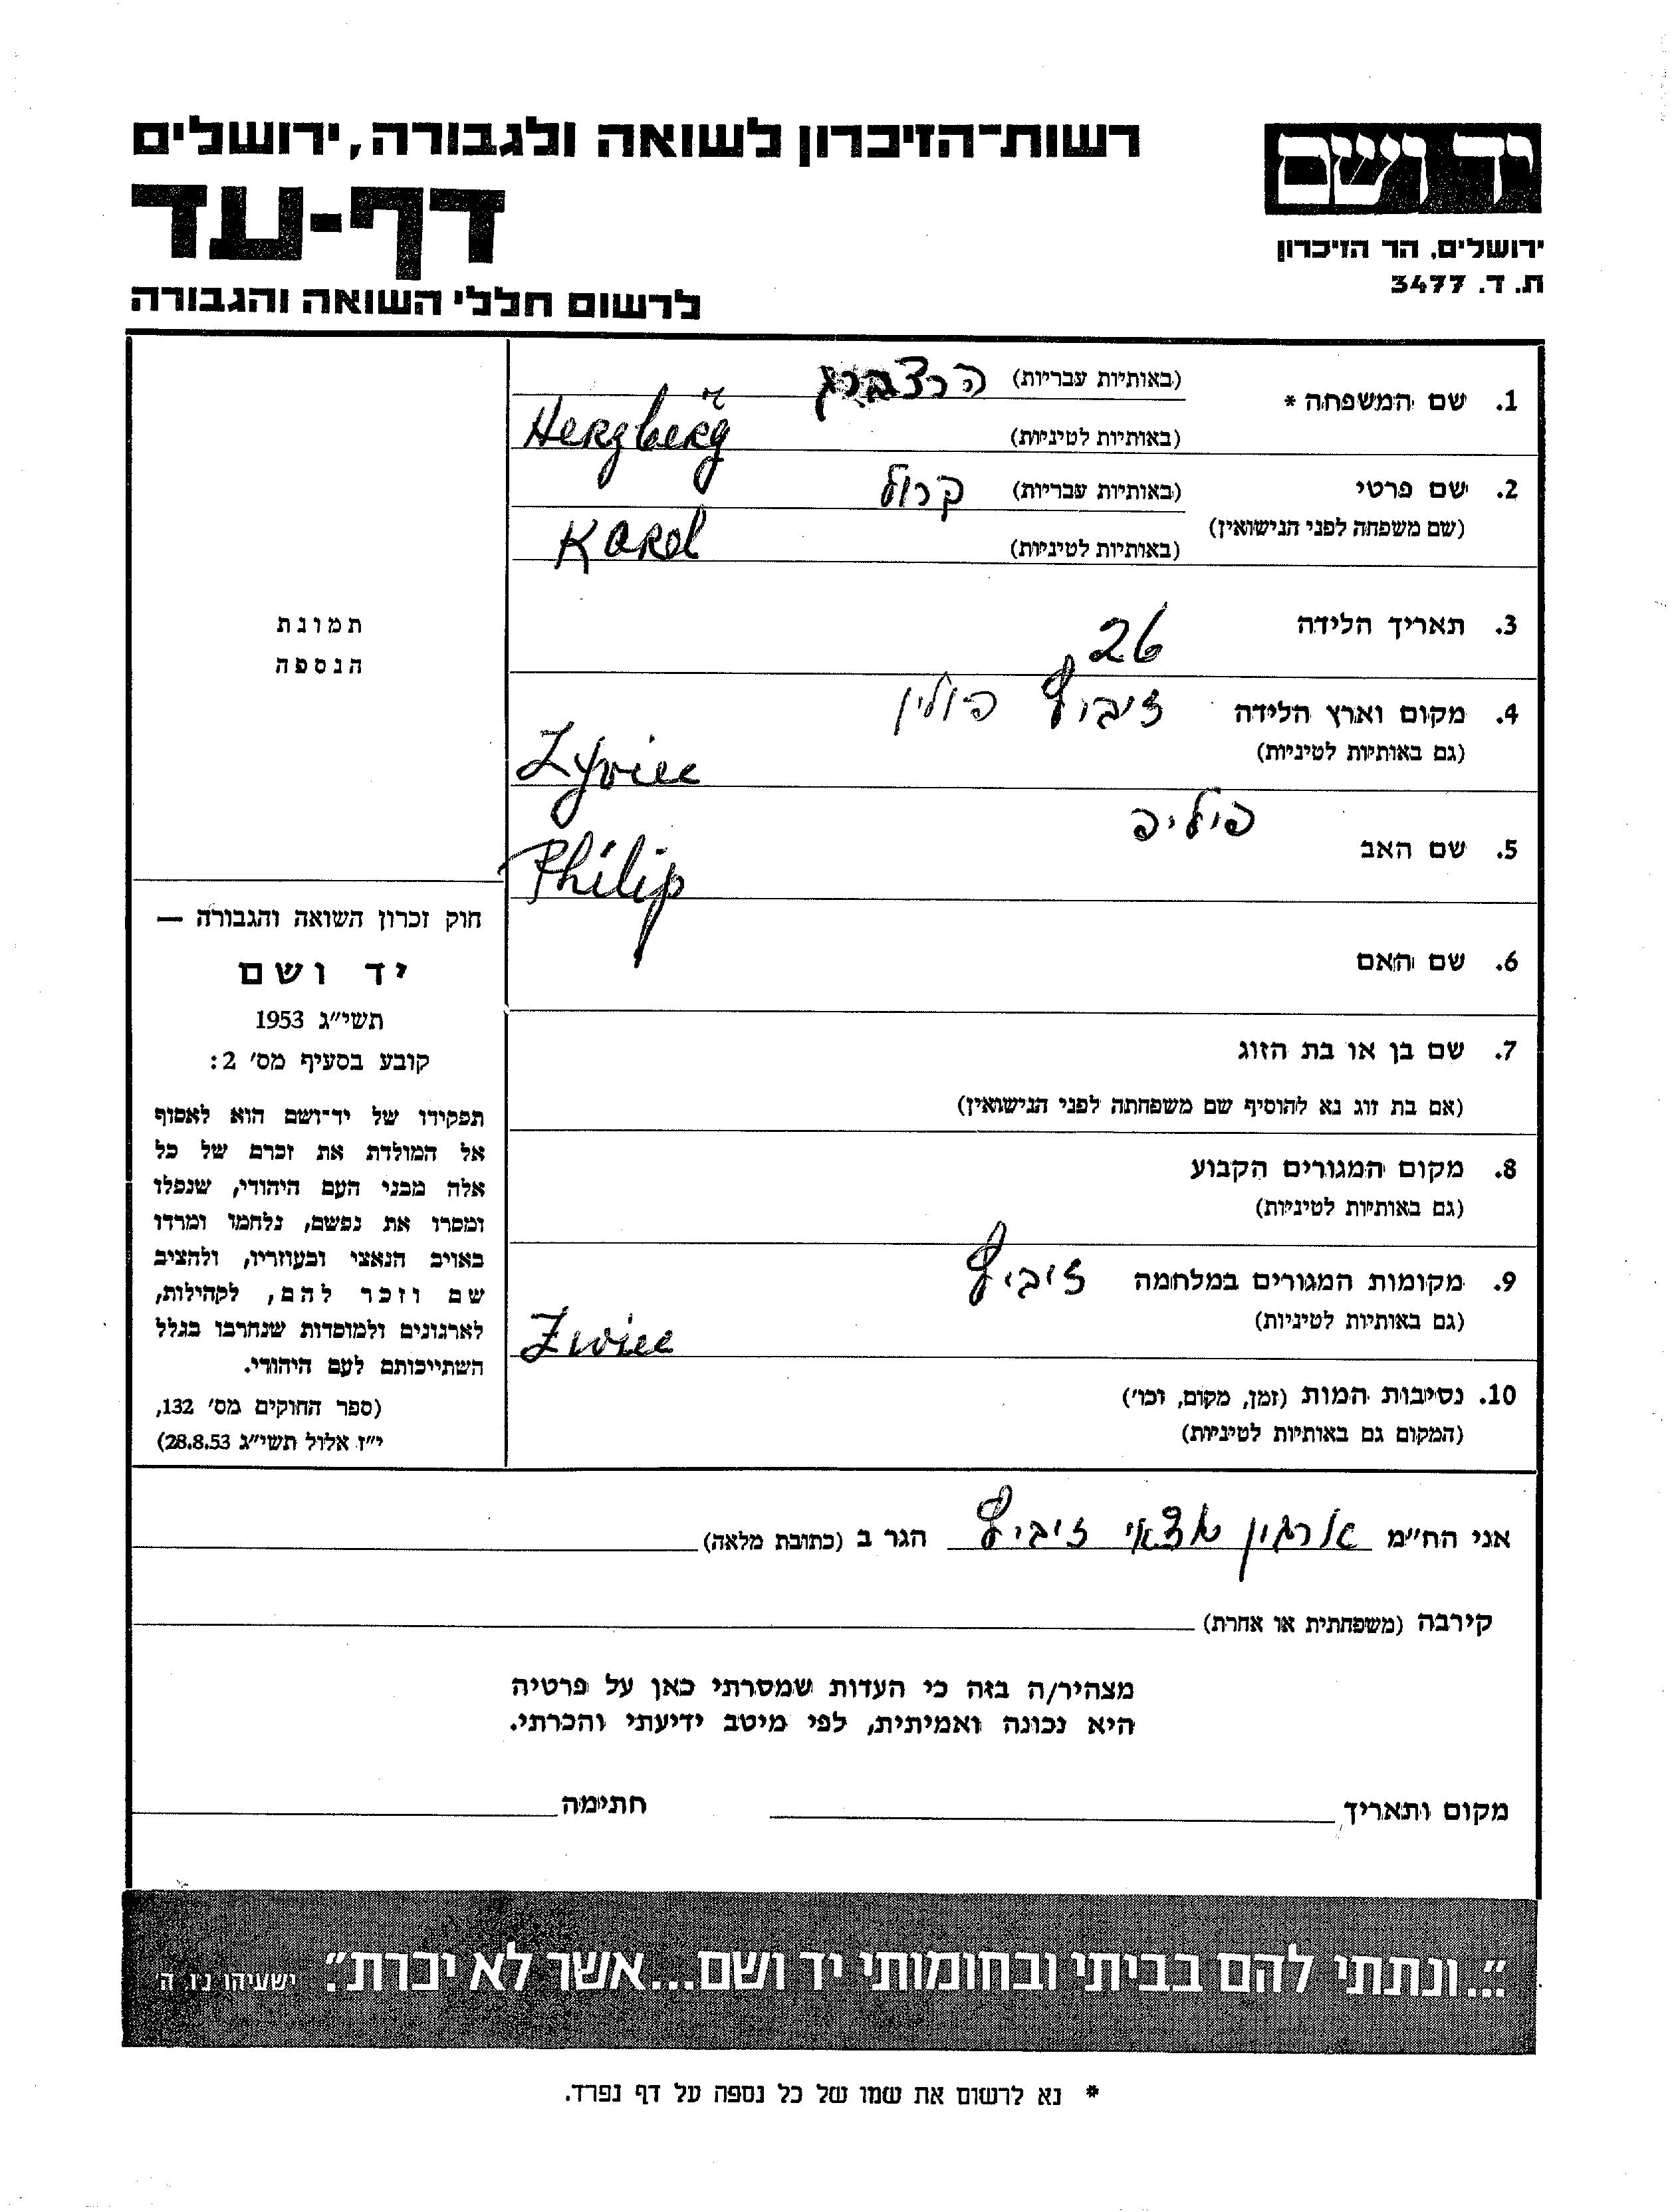 רשות־הזיכרון לשואה ולגבורה, ירושלים
יד ושם
דף-עד
ירושלים, הר הזיכרון
ת. ד. 3477
לרשום חללי השואה והגבורה
1. שם המשפחה *
(באותיות עבריות) הרצברג
(באותיות לטיניות) Herzberg
2. שם פרטי
(שם משפחה לפני הנישואין)
(באותיות עבריות) קרול
(באותיות לטיניות) Karol
תמונת
הנספה
3. תאריך הלידה 26
4. מקום וארץ הלידה זיביץ פולין
(גם באותיות לטיניות) Zyviec
5. שם האב פיליפ
Philip
6. שם האם
7. שם בן או בת הזוג
(אם בת זוג נא להוסיף שם משפחתה לפני הנישואין)
8. מקום המגורים הקבוע
(גם באותיות לטיניות)
9. מקומות המגורים במלחמה זיביץ
(גם באותיות לטיניות) Zwiec
10. נסיבות המות (זמן, מקום, וכו')
(המקום גם באותיות לטיניות)
חוק זכרון השואה והגבורה —
יד ושם
תשי״ג 1953
קובע בסעיף מס' 2:
תפקידו של יד־ושם הוא לאסוף
אל המולדת את זכרם של כל
אלה מבני העם היהודי, שנפלו
ומסרו את נפשם, נלחמו ומרדו
באויב הנאצי ובעוזריו, ולהציב
שם וזכר להם, לקהילות,
לארגונים ולמוסדות שנחרבו בגלל
השתייכותם לעם היהודי.
(ספר החוקים מס' 132,
י״ז אלול תשי״ג 28.8.53)
אני הח״מ ארגון יוצאי זיביץ הגר ב (כתובת מלאה)
קירבה (משפחתית או אחרת)
מצהיר/ה בזה כי העדות שמסרתי כאן על פרטיה
היא נכונה ואמיתית, לפי מיטב ידיעתי והכרתי.
מקום ותאריך חתימה
״...ונתתי להם בביתי ובחומותי יד ושם...אשר לא יכרת״. ישעיהו נ״ו ה
* נא לרשום את שמו של כל נספה על דף נפרד.